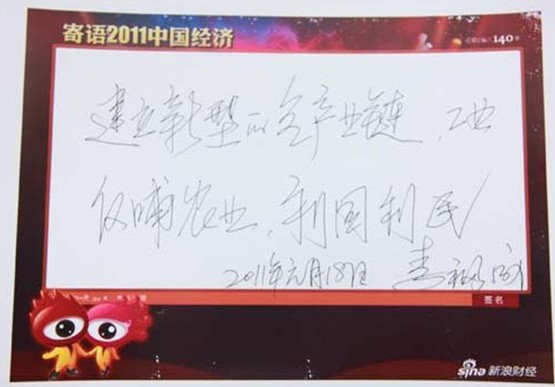 寄语2011中国经济
140
建立新型的全产业链，工业
反哺农业，利国利民
2011年元月18日
签名
sina 新浪财经